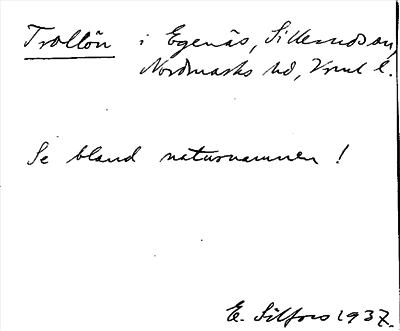 Trollön i Egenäs, Silleruds sn,
Nordmarks hd, Vrml l.
Se bland naturnamnen!
E. Silfors 1937.